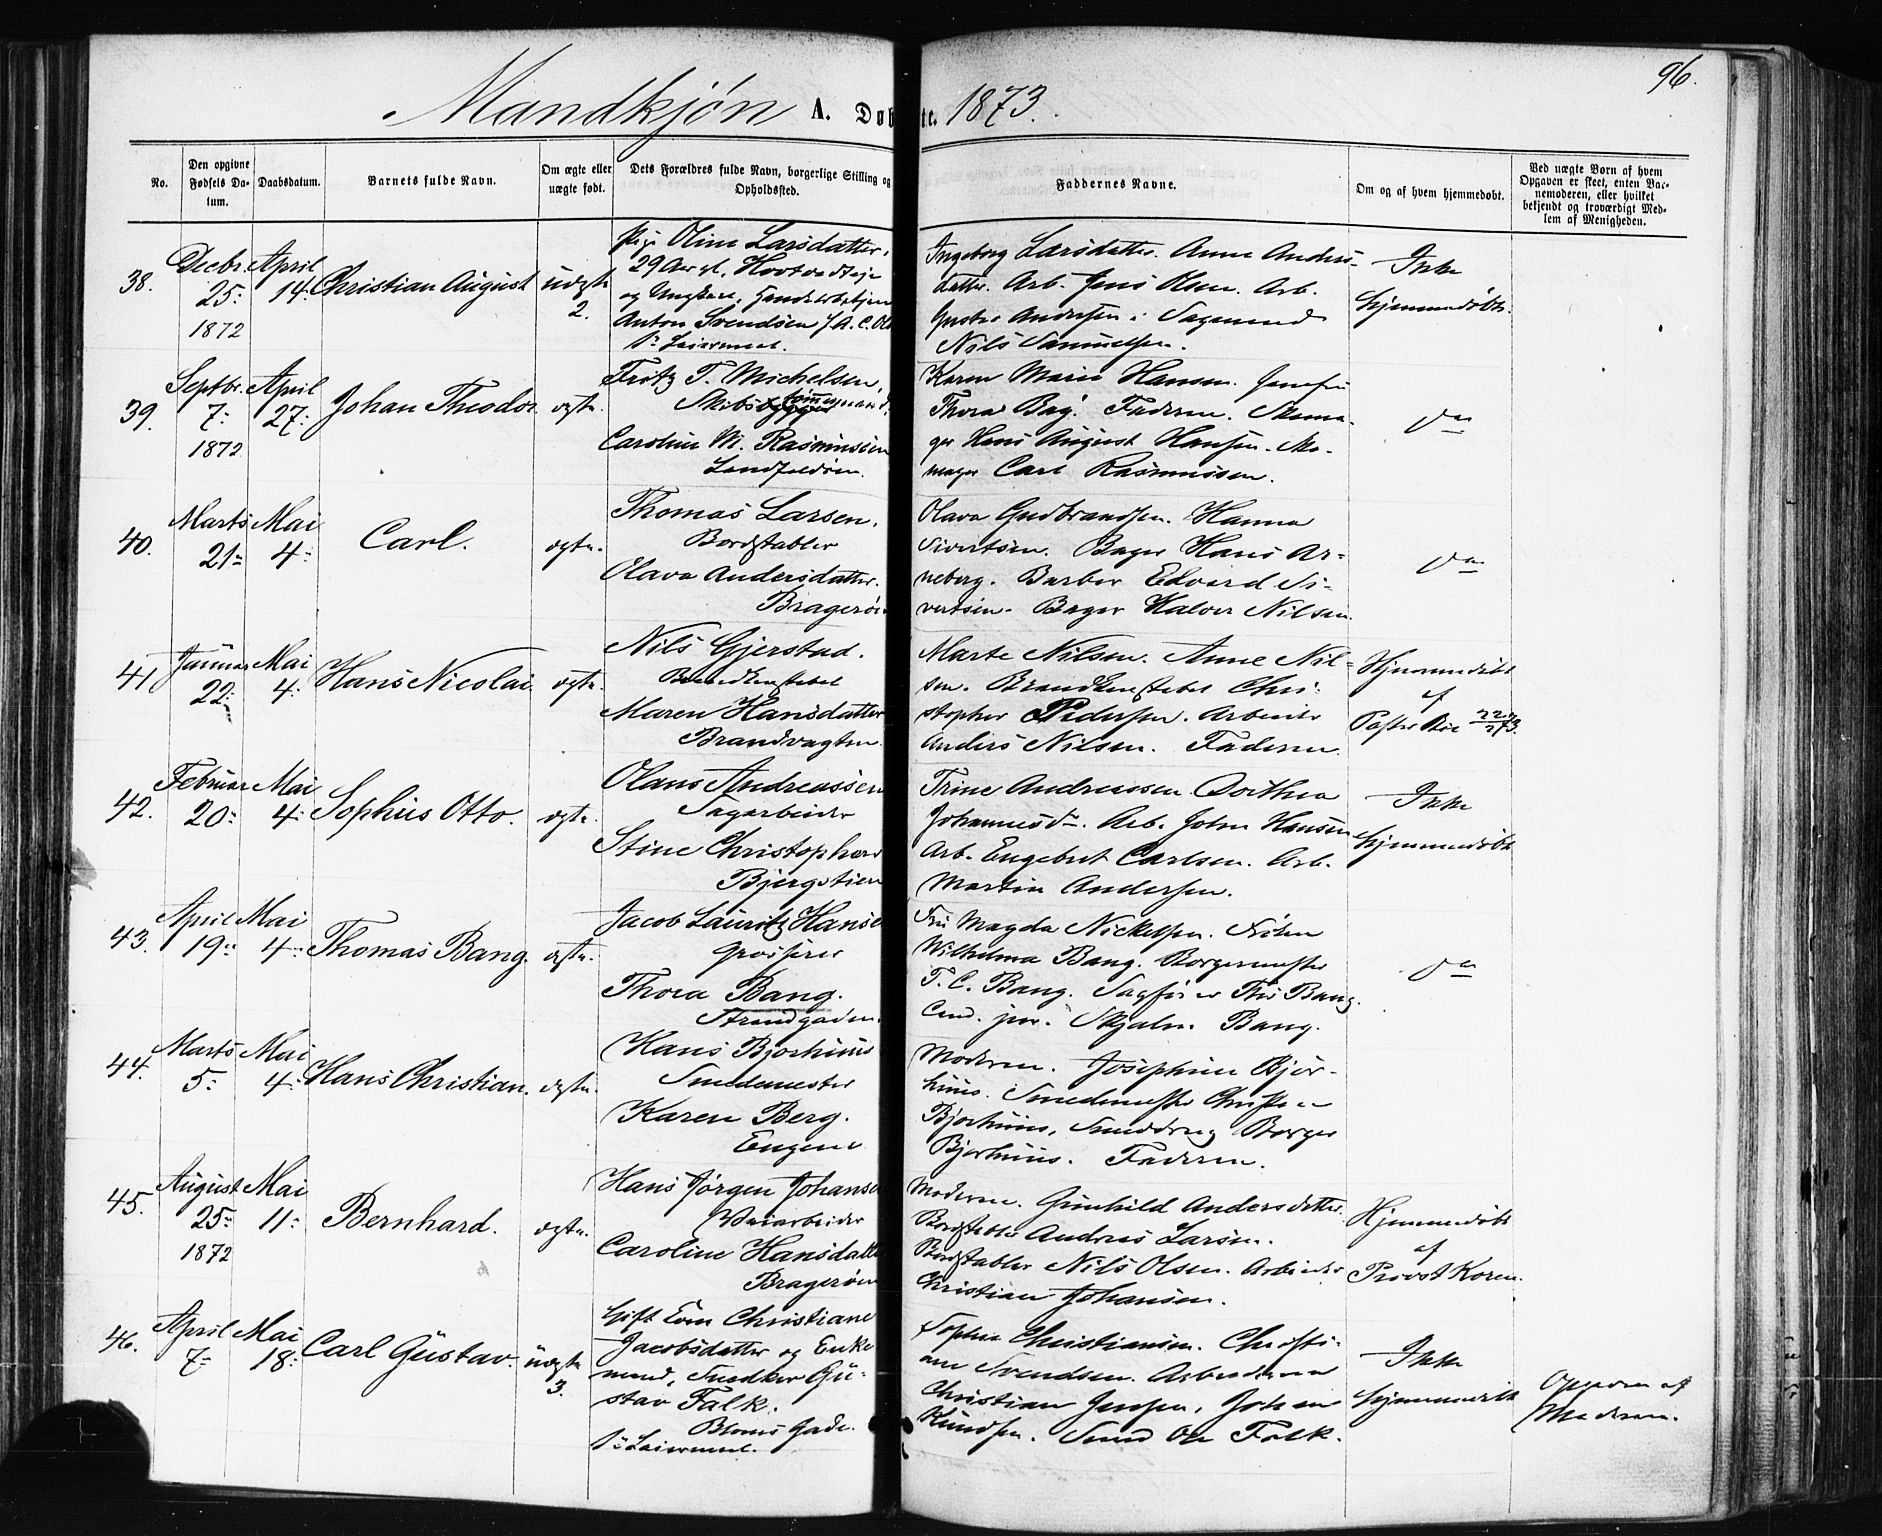 96.
Mandkjøn A. Døbte. 1873.
No.
Den opgivne Fødsels Datum.
Daabsdatum.
Barnets fulde Navn.
Om ægte eller uægte født.
Dets Forældres fulde Navn, borgerlige Stilling og Opholdssted.
Faddernes Navne.
Om og af hvem hjemmedøbt.
Ved uægte Børn af hvem
Opgaven er skeet, enten Bar-
namoderen, eller hvilket
bekjendt og troværdigt Med-
lem af Menigheden.
38.
Decbr. 25 1872
April 14
Christian August
uægte 2.
Pige Oline Larsdatter,
29 Aar gl.
og Ungkarl,
Anton Svendsen
1ste Leiermaal.
Ingeborg Larsdatter. Anne Anders-
datter. Arb. Jens Olsen. Arb.
Gustav Andersen. Sagmand
Nils Samuelsen.
Ikke
hjemmedøbt.
39.
Septbr. 7 1872
April 27
Johan Theodor
ægte.
Fritz T. Michelsen,
Skibstømmermand
Caroline M. Rasmussen
Karen Marie Hansen. Jomfru
Thora Bag. Faderen.
Hans August Hansen.
Carl Rasmussen.
do
40.
Marts 21
Mai 4
Carl.
ægte.
Thomas Larsen,
Bordstabler
Olava Andersdatter.
Bragerøen
Olava Gudbrandsen. Hanna
Sivertsen. Bager Hans Ar-
neberg. Barber Edvard Si-
vertsen. Bager Halvor Nilsen.
do
41.
Januar 22
Mai 4
Hans Nicolai
ægte.
Nils Gjerstad.
Brandkonstabel
Maren Hansdatter
Brandvagten.
Marte Nilsen. Anne Nil-
sen. Brandkonstabel Chri-
stopher Pedersen. Arbeider
Anders Nilsen. Faderen.
Hjemmedøbt
af
Pastor
42.
Februar 20
Mai 4
Sophus Otto.
ægte.
Olaus Andreassen
Sagarbeider
Stine Christophers
Bjergstien
Trine Andreassen. Dorthea
Johannesdr. Arb. John Hansen
Arb. Engebret Carlsen. Arb.
Martin Andersen.
Ikke
hjemmedøbt
43.
April 19
Mai 4
Thomas Bang.
ægte.
Jacob Lauritz Hanse
Grosserer
Thora Bang.
Strandgaden.
Fru Magda Nickelsen. Frøken
Wilhelma Bang. Borgermester
T. C. Bang. Sagfører Ths Bang.
Cand. jur. Skjalm Bang.
do
44.
Marts 5
Mai 4
Hans Christian.
ægte.
Hans Bjørhuus
Smedemester
Karen Berg.
Engene
Moderen. Josephine Bjør-
huus. Smedemester
Bjorhuus, Smeddreng Borger
Bjorhuus. Faderen.
45.
August 25 1872
Mai 11
Bernhard.
ægte.
Hans Jørgen Johanse
Veiarbeider
Caroline Hansdatte
Bragerøen
Moderen. Gunhild Andersdatter.
Bordstabler Andreas Larsen.
Bordstabler Nils Olsen. Arbeider
Christian Johansen.
Hjemmedøbt
af
Provst Koren.
46.
April 7
Mai 18
Carl Gustav.
uægte 3.
Gift Kone Christiane
Jacobsdatter og Enke
mand, Snedker Gu-
stav Falk.
Bloms Gade.
1ste Leiermaal.
Sophie Christiansen. Christi-
ane Svendsen. Arbeiderne
Christian Jensen, Johan
Knudsen. Smed Ole Falk.
Ikke
hjemmedøbt
Opgaven af
Moderen.